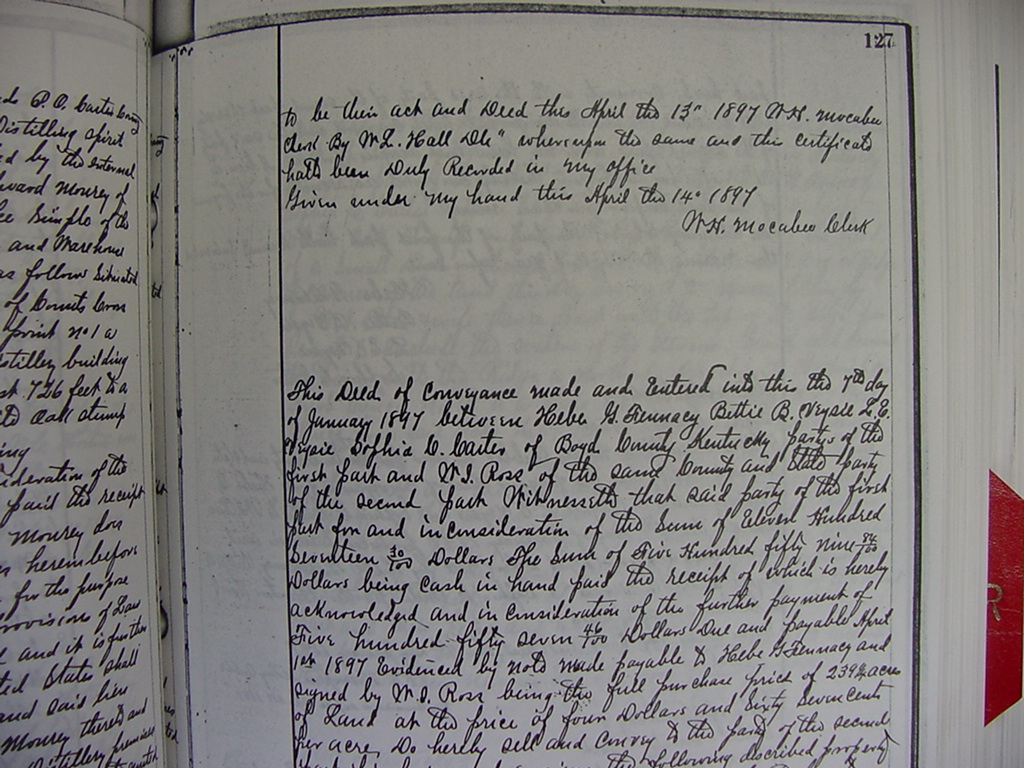 127
to be their act and Deed this April the 13" 1897 W.H. Mocabee
Clerk By W.L. Hall Dc" whereupon the same and this certificate
hath been Duly Recorded in my office
Given under my hand this April the 14" 1897
W.H. Mocabee Clerk
This Deed of Conveyance made and Entered into this the 7th day
of January 1897 between Hebe G. Tennacy Bettie B. Veysie L.E.
Veysie Sophia D. Carter of Boyd County Kentucky partys of the
first part and W.I. Ross of the same County and State party
of the second part Witnesseth that said party of the first
part for and in consideration of the Sum of Eleven Hundred
Seventeen 30/100 Dollars The Sum of Five Hundred fifty nine 84/100
Dollars being cash in hand paid the receipt of which is hereby
acknowledged and in consideration of the further payment of
Five hundred fifty seven 46/100 Dollars Due and payable April
1st 1897 Evidenced by note made payable to Hebe G Tennacy and
signed by W.I. Ross being the full purchase price of 239 acres
of Land at the price of four Dollars and Sixty Seven cents
per acre, Do hereby sell and convey to the party of the second
the following described property
P.O. Carter
Distilling spirit
by the internal
Edward Mourey of
Simple of the
and Warehouse
as follow Situated
of Counts Cross
point no 1 a
distillery building
726 feet to a
oak stump
consideration of the
paid the receipt
Mourey does
herein before
for the purpose
provisions of Law
and it is further
States shall
and said lien
Mourey thereto and
distillery premises